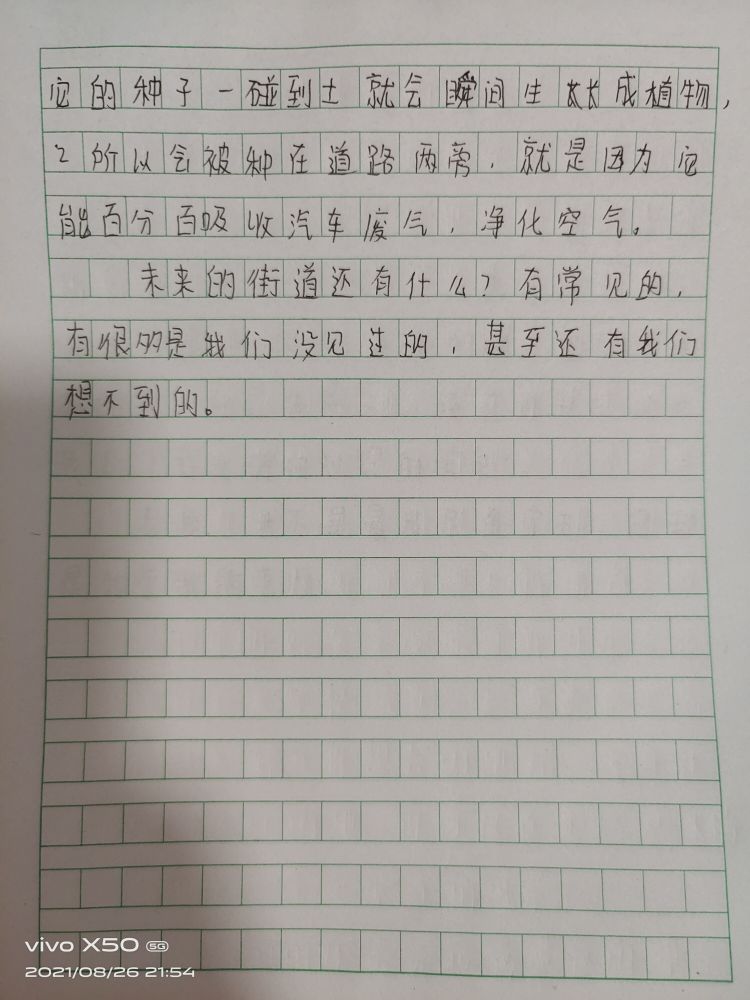 它的种子一碰到土就会瞬间生长成植物，
之所以会被种在道路两旁，就是因为它
能百分百吸收汽车废气，净化空气。
未来的街道还有什么？有常见的，
有很多是我们没见过的，甚至还有我们
想不到的。
vivo X50 5G
2021/08/26 21:54